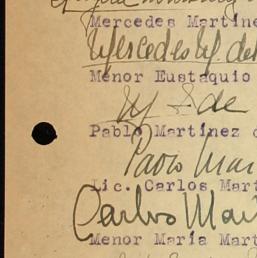 Mercedes Martíne
Mercedes M. de
Menor Eustaquio
M de
Pablo Martínez
Pablo Mar
Lic. Carlos Mart
Carlos Mar
Menor María Mart